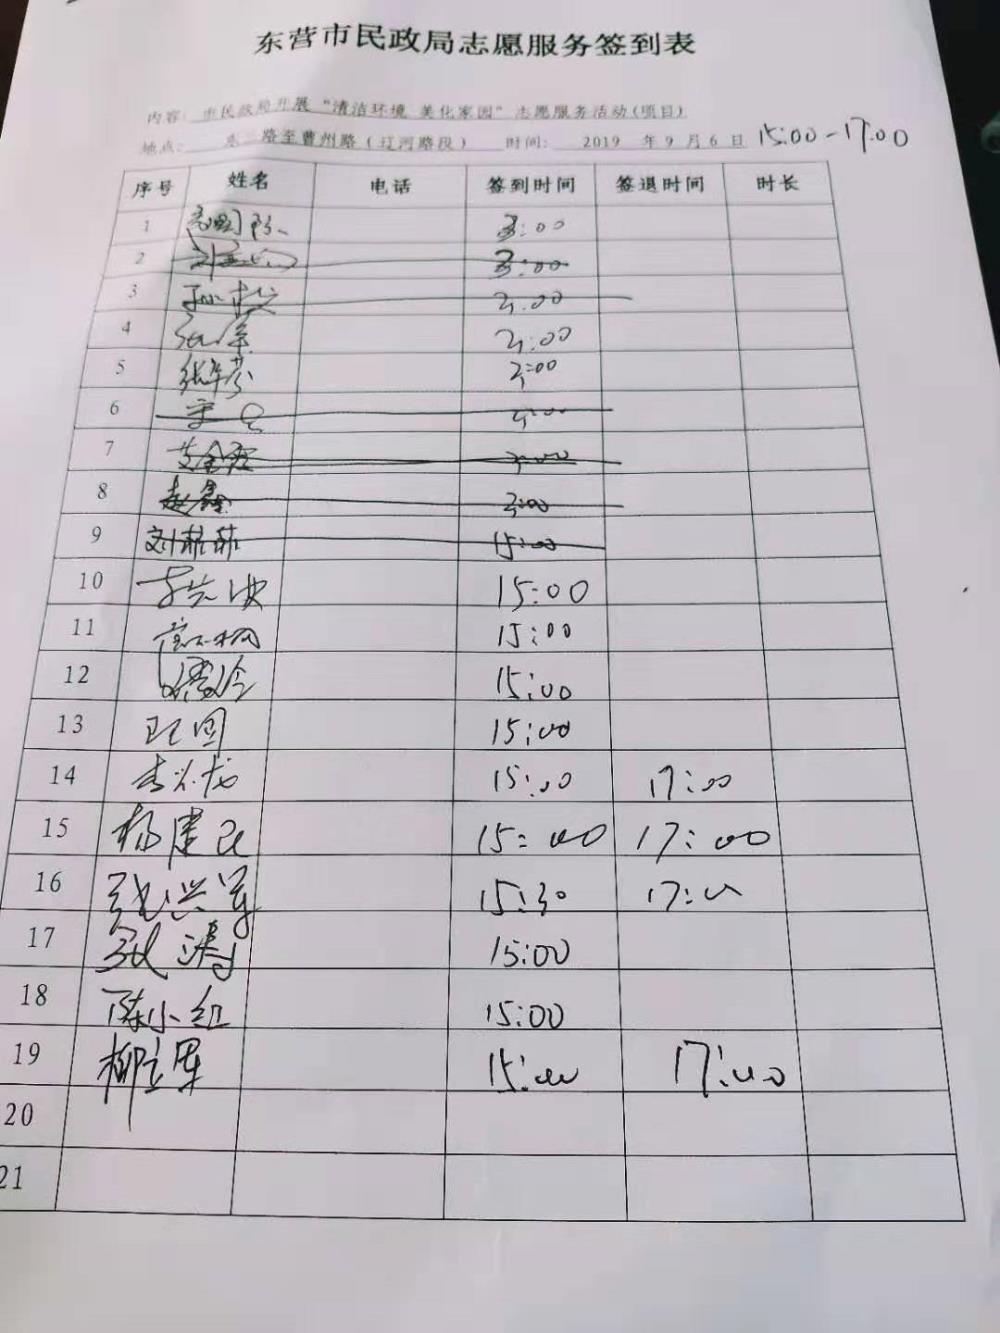 东营市民政局志愿服务签到表
内容: 市民政局开展“清洁环境 美化家园”志愿服务活动(项目)
地点: 东二路至曹州路(辽河路段) 时间: 2019 年 9 月 6 日 15:00-17:00
序号 姓名 电话 签到时间 签退时间 时长
1 3:00
2 3:00
3 3:00
4 3:00
5 张华芬 3:00
6 3:00
7 3:00
8 赵鑫 3:00
9 刘菲菲 15:00
10 15:00
11 15:00
12 15:00
13 15:00
14 15:00 17:00
15 杨建民 15:00 17:00
16 张兴军 15:30 17:00
17 张涛 15:00
18 陈小红 15:00
19 柳立军 15:00 17:00
20
21